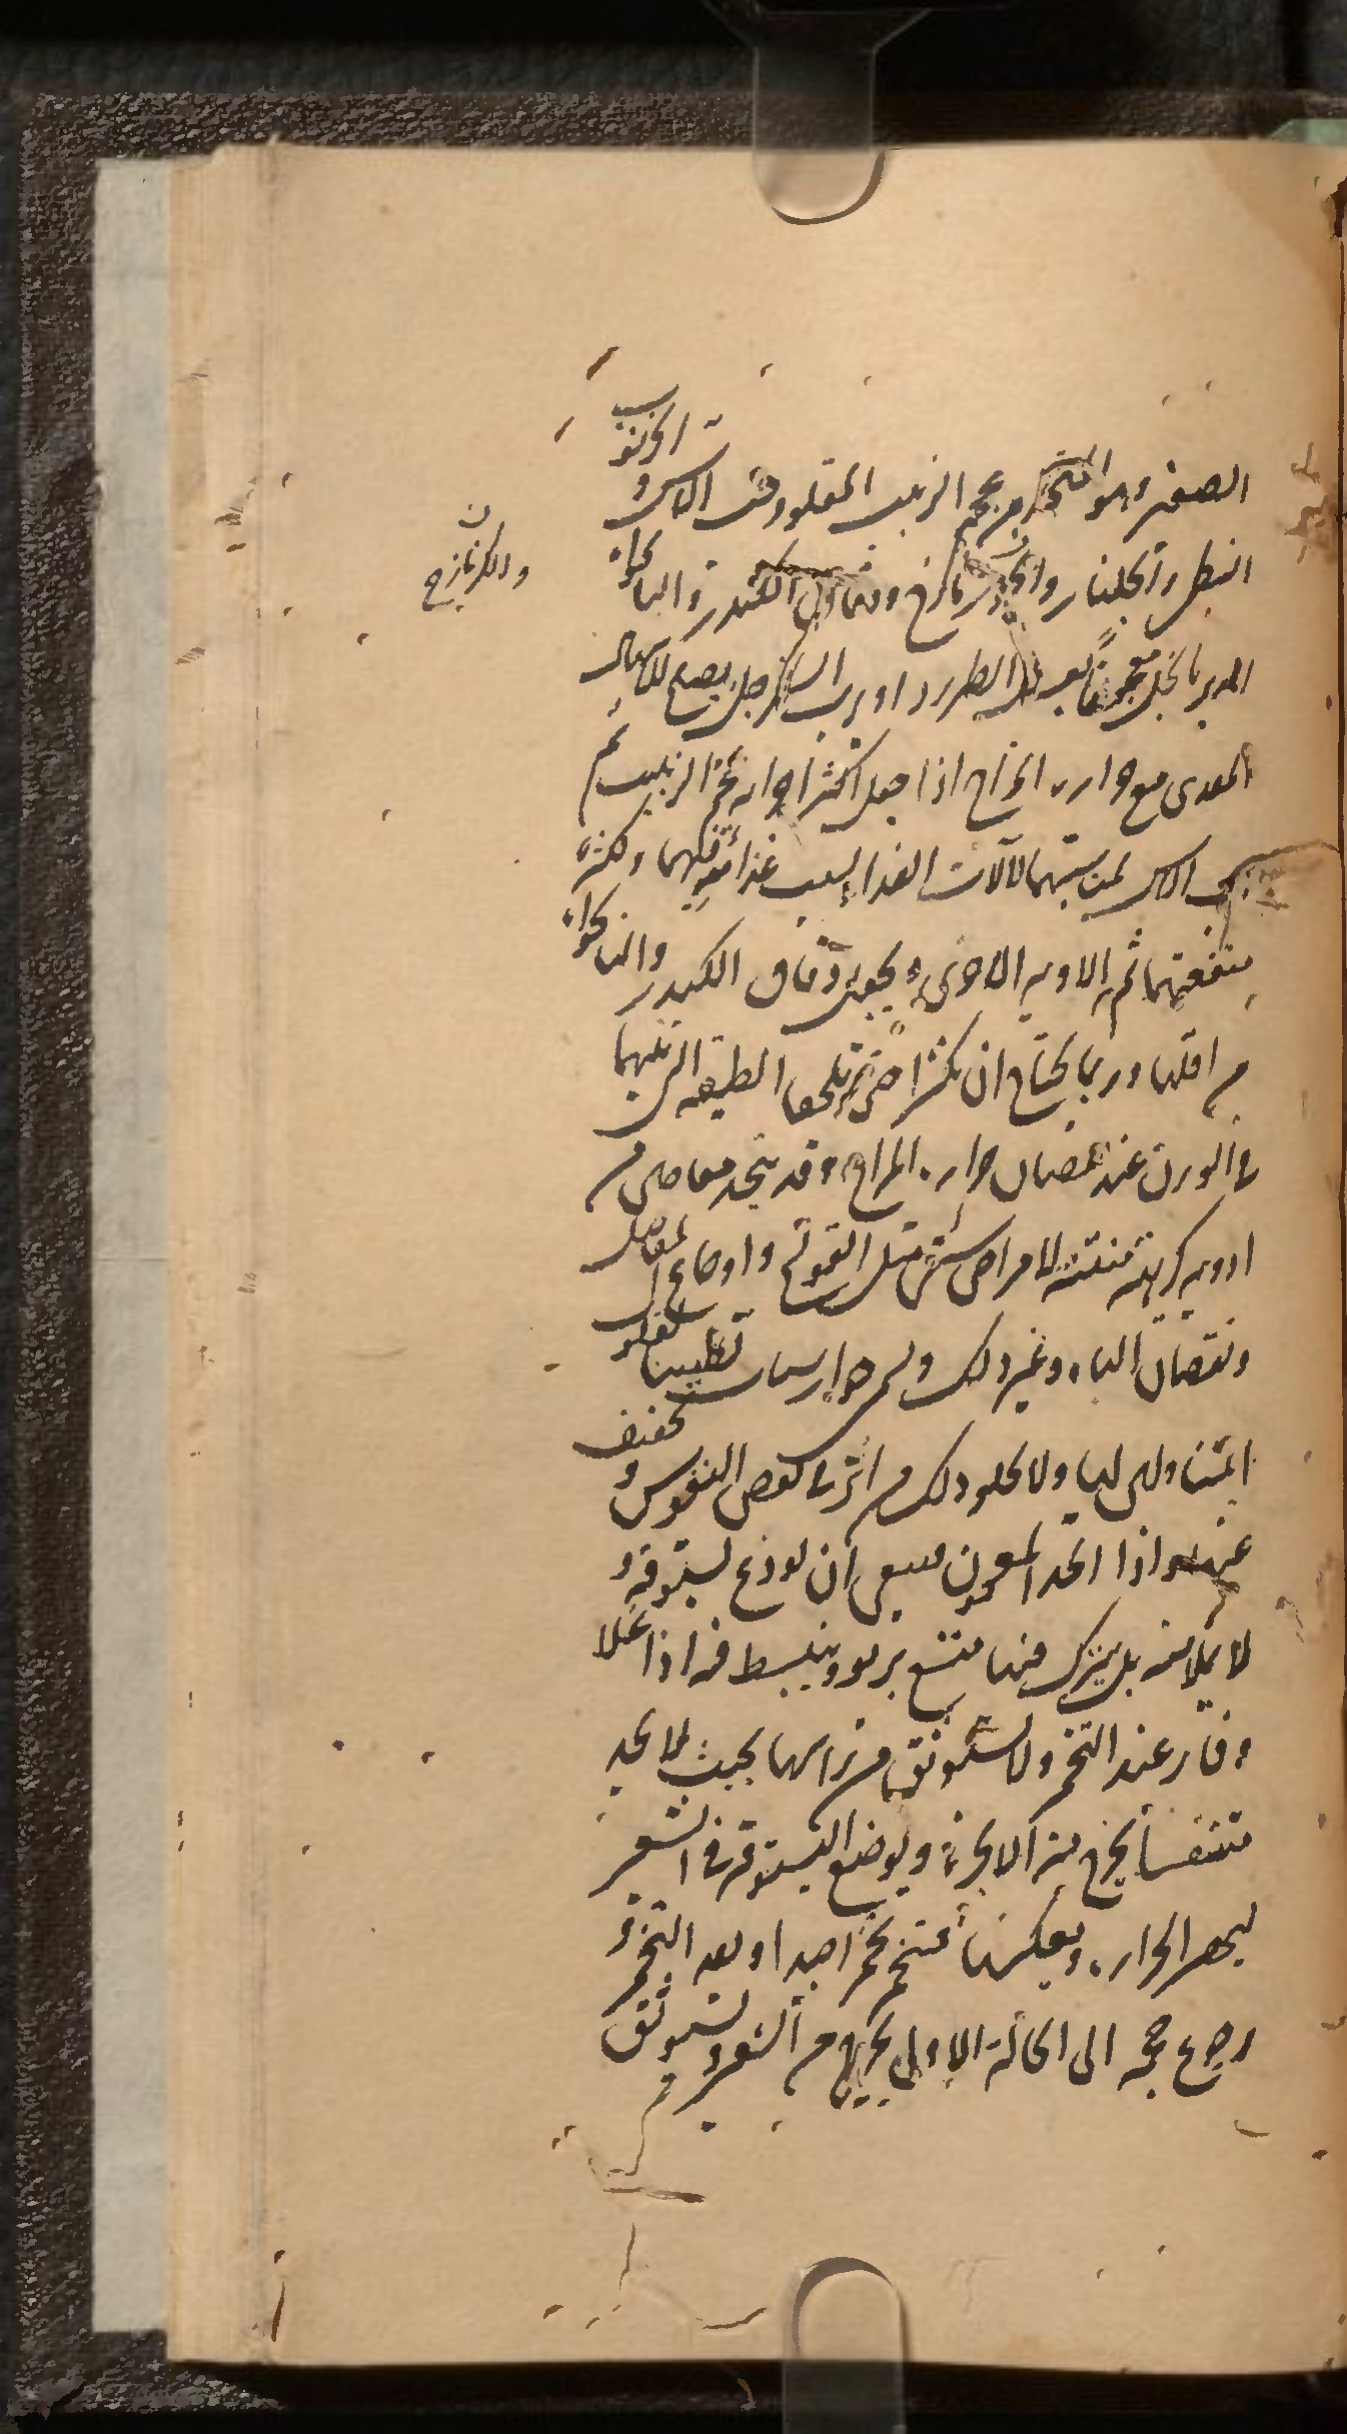 الصغير وهو المتخذ من عجم الزبيب المقلو وحب الاس و الخرنوب
النبطى والجلنار والكزمازج ودقاق الكندر والنانخواه
والكزمازج
المدبر بالخل معجونا بعسل الطبرزد او برب السفرجل يصلح للاسهال
المعدى مع حرارة المزاج اذا جعل اكثر اجزائه عجم الزبيب ثم
حب الاس لمناسبتهما لآلات الغذاء بسبب غذائيتهما وكثرة
منفعتهما ثم الادوية الاخرى ويجعل دقاق الكندر والنانخواه
من اقلها وربما يحتاج ان يكثرا حتى
فى الوزن عند نقصان حرارة المزاج وقد يتخذ معاجين من
ادوية كريهة منتنة لامراض شتى مثل القولنج واوجاع المفاصل
ونقصان الباه وغير ذلك وسمى جوارشات تطييبا لقلوب
المتناولين لها ولا يخلو ذلك من اثر ما لبعض النفوس و
واذا اتخذ المعجون ينبغى ان يودع بستوقة و
لا يملأ منه بل يترك فيها متسع يربو وينبسط فيه اذا غلا
وفار عند التخمر ولا يستوثق من راسها بحيث لا يجد
متنفسا يخرج منه الابخرة ويوضع البستوقة فى الشعير
ليحصر الحرارة ويعكسها فيتخمر تخمرا جيدا وبعد التخمر و
رجوع حجمه الى الحالة الاولى يخرج من الشعير ويستوثق